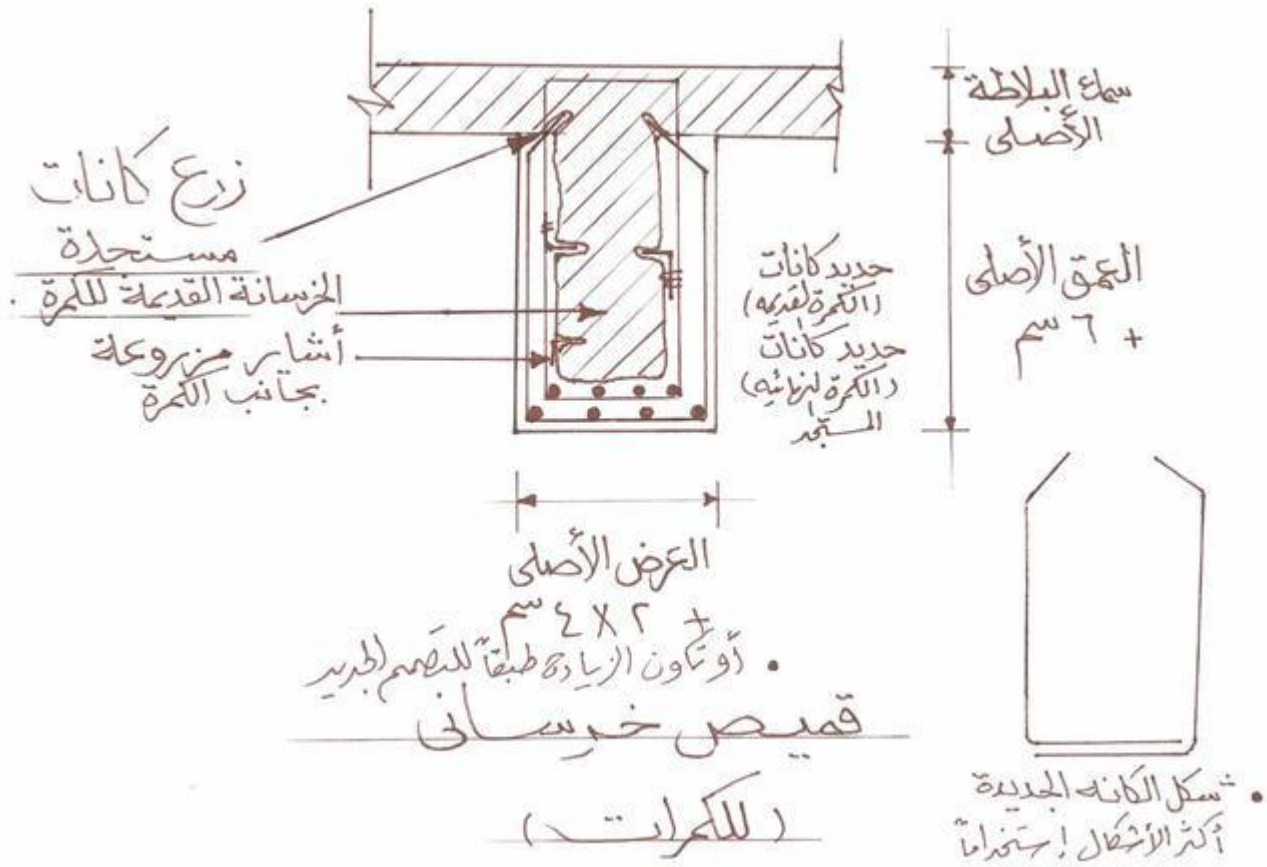 سمك البلاطة
الأصلى
زرع كانات
مستجدة
الخرسانة القديمة للكمرة
أشاير مزروعة
بجانب الكمرة
حديد كانات
(الكمرة القديمه)
حديد كانات
(الكمرة النهائيه)
المستجد
العمق الأصلى
+ ٦ سم
العرض الأصلى
+ ٢ X ٤ سم
• أو تكون الزيادة طبقاً للتصميم الجديد
قميص خرسانى
(للكمرات)
• شكل الكانه الجديدة
أكثر الأشكال إستخداماً